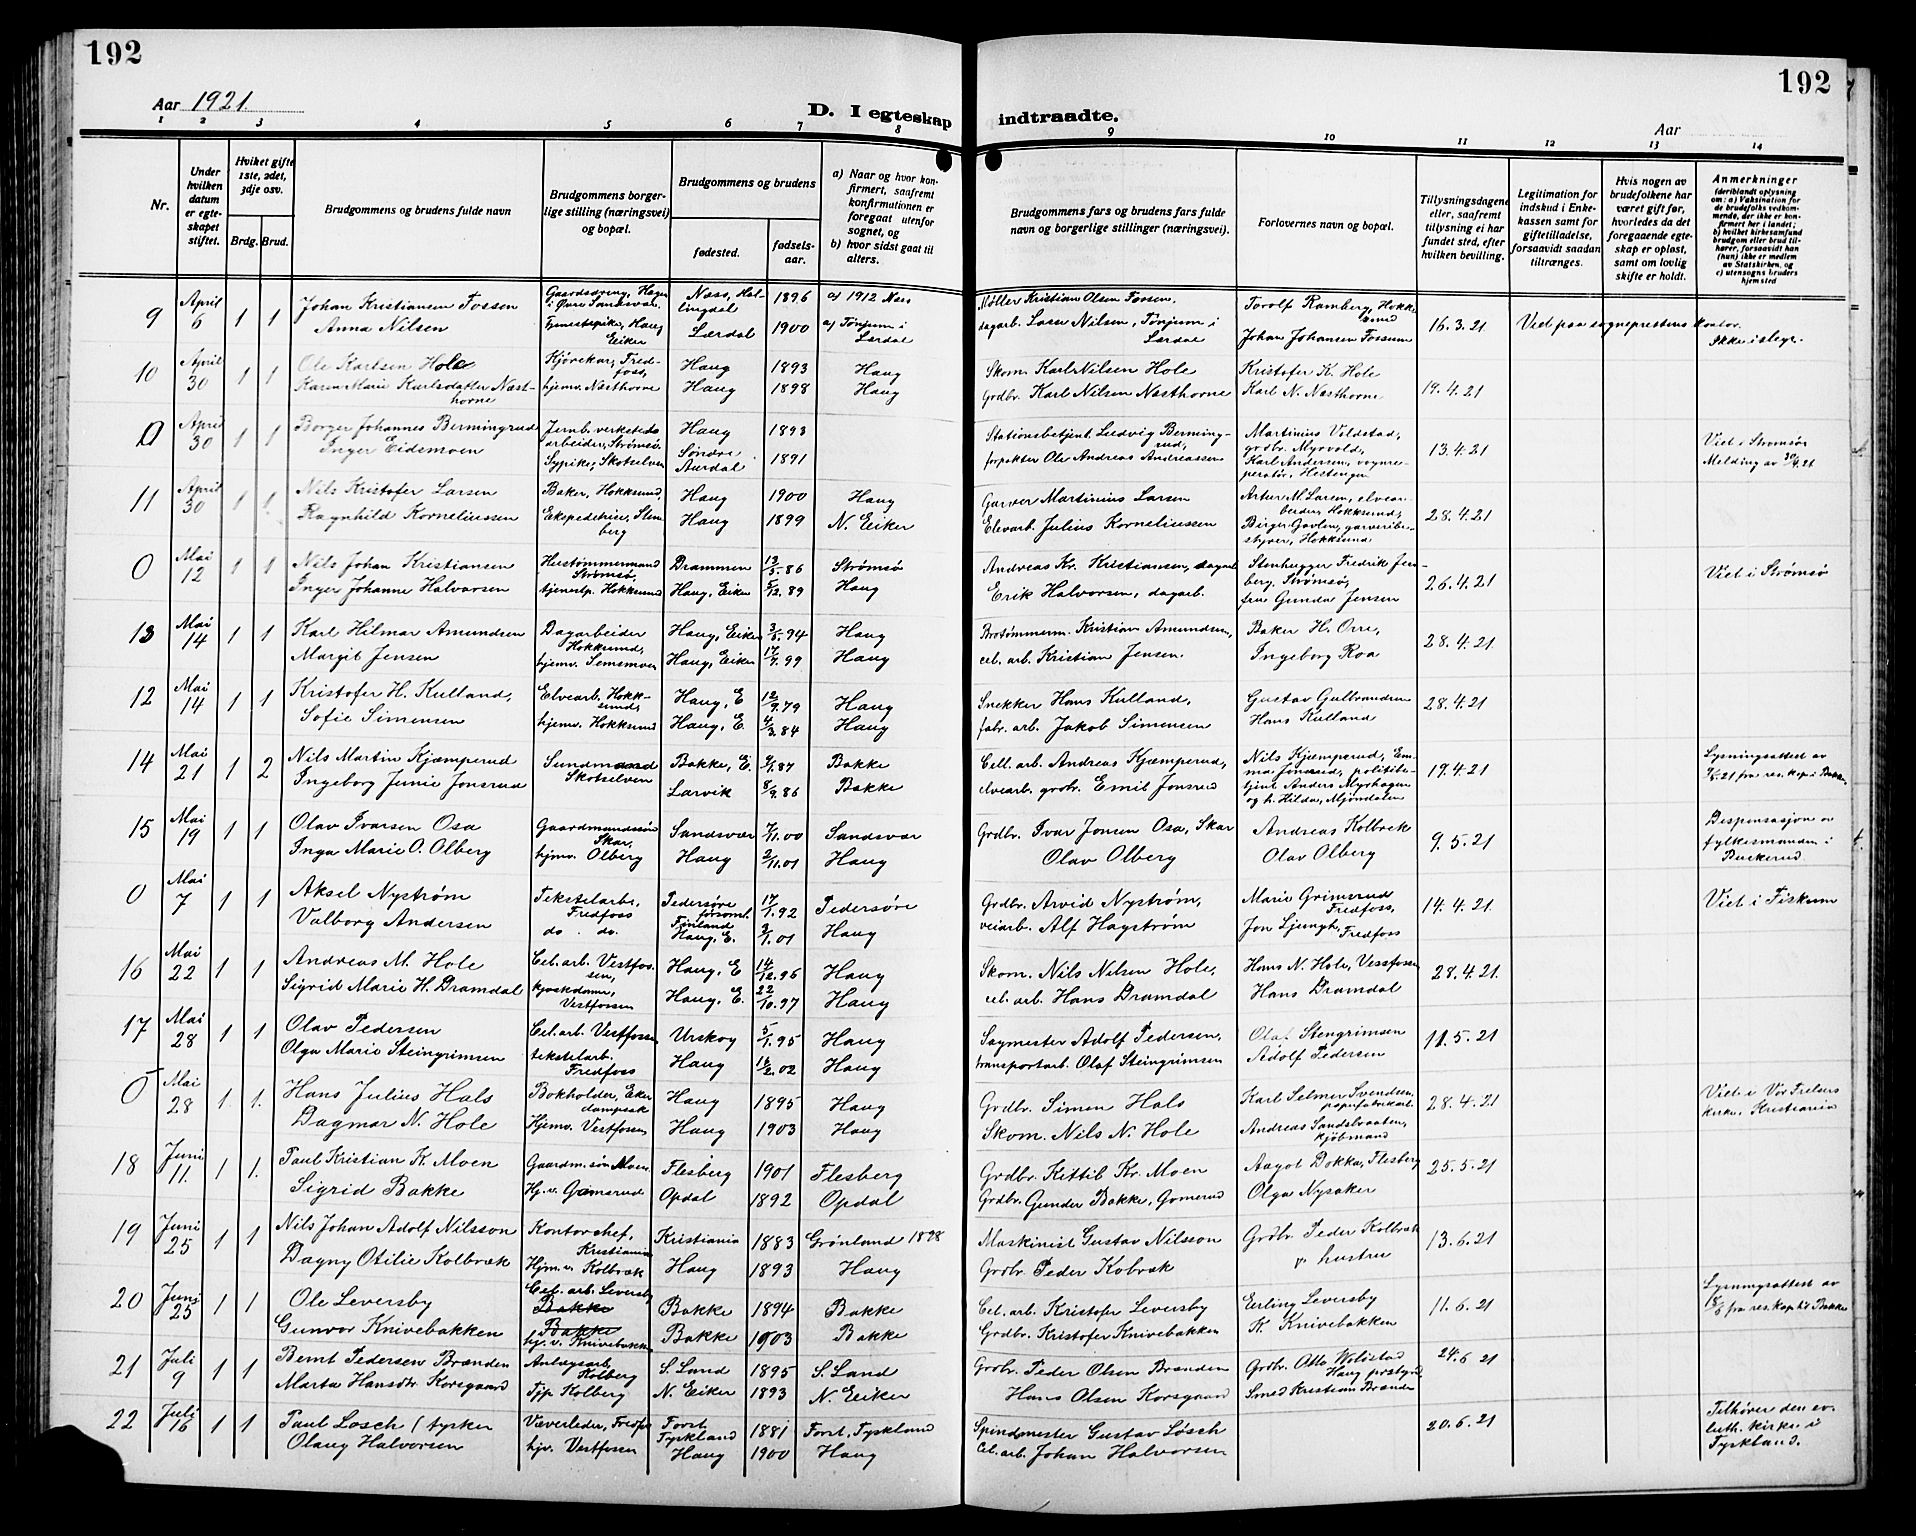 192
192
Aar 1921.
D. I egteskap indtraadte.
Aar
1 2 3 4 5 6 7 8 9 10 11 12 13 14
Nr.
Under hvilken datum er egteskapet stiftet.
Hviket gifte 1ste, 2det, 3dje osv.
Brdg. Brud.
Brudgommens og brudens fulde navn
Brudgommens borgerlige stilling (næringsvei) og bopæl.
Brudgommens og brudens
fødested.
fødselsaar.
a) Naar og hvor konfirmert, saafremt konfirmationen er foregaat utenfor sognet, og
b) hvor sidst gaat til alters.
Brudgommens fars og brudens fars fulde navn og borgerlige stillinger (næringsvei).
Forlovernes navn og bopæl.
Tillysningsdagene eller, saafremt tillysning ei har fundet sted, efter hvilken bevilling.
Legitimation for indskud i Enkekassen samt for giftetilladelse, forsaavidt saadan tiltrænges.
Hvis nogen av brudefolkene har været gift før, hvorledes da det foregaaende egteskap er opløst, samt om lovlig skifte er holdt.
Anmerkninger
(deriblandt oplysning om: a) Vaksination for de brudefolks vedkommende, der ikke er konfirmert her i landet;
b) hvilket kirkesamfund brudgom eller brud tilhører, forsaavidt han (hun) ikke er medlem av Statskirken, og
c) utensogns bruders hjemsted
9 April 6 1 1 Johan Kristiansen Fossen Gaardsdreng, Hagen i Øvre Sandsvær, Næss, Hallingdal 1896 a) 1912 Næss Møller Kristian Olsen Fossen, Torolf Ramberg, Hokksund 16.3.21 Viet paa sogneprestens kontor. Ikke i slegt.
Anna Nilsen Tjenestepike, Haug, Eiker Lærdal 1900 a) Tønjum i Lærdal dagarb. Lasse Nilsen, Tønjum i Lærdal Johan Johansen Fossum
10 April 30 1 1 Ole Karlsen Hole Kjørekar, Fredfoss, Haug 1893 Haug Skom. Karl Nilsen Hole Kristofer K. Hole 19.4.21
Karen Marie Karlsdatter Næsthorne hjemv. Næsthorne Haug 1898 Haug Grdbr. Karl Nilsen Næsthorne Karl N. Næsthorne
0 April 30 1 1 Borger Johannes Bermingrud Jernb. verksteds arbeider, Strømsø. Haug 1893 Stationsbetjent Ludvig Bermingrud, Martinius Vildstad, grdbr. Myrvold, 13.4.21 Viet i Strømsø
Inger Eidemoen Sypike, Skotselven Søndre Aurdal 1891 forpakter Ole Andreas Andreassen Karl Andersen, vognreperatør, Hestengen Melding av 30/4 21
11 April 30 1 1 Nils Kristofer Larsen Baker, Hokksund, Haug 1900 Haug Garver Martinius Larsen Artur M. Larsen, elvearbeider, Hokksund, 28.4.21
Ragnhild Korneliussen Ekspeditrice, Stenberg Haug 1899 N. Eiker Elvearb. Julius Korneliussen Birger Govlen, garveribestyrer, Hokksund
0 Mai 12 1 1 Nils Johan Kristiansen Hustømmermand Strømsø, Drammen 13/3.86 Strømsø Andreas Kr. Kristiansen, dagarb. Stenhugger Fredrik Jenberg, Strømsø, 26.4.21 Viet i Strømsø
Inger Johanne Halvorsen tjenestp. Hokksund Haug, Eiker 5/12.89 Haug Erik Halvorsen, dagarb. fru Gunda Jensen
13 Mai 14 1 1 Karl Hilmar Amundsen Dagarbeider Hokksund, Haug, Eiker 3/5.94 Haug Brotømmerm. Kristian Amundsen, Baker H. Orre, 28.4.21
Margit Jensen hjemv. Semsmoen Haug, Eiker 17/7.99 Haug cel. arb. Kristian Jensen. Ingeborg Roa
12 Mai 14 1 1 Kristofer H. Kulland, Elvearb. Hokksund, Haug, E 12/9.79 Haug Snekker Hans Kulland, Gustav Gulbrandsen 28.4.21
Sofie Simensen hjemv. Hokksund Haug, E. 4/3.84 Haug fabr. arb. Jakob Simensen Hans Kulland
14 Mai 21 1 2 Nils Martin Kjæmperud Sundmand Skotselven Bakke, E. 9/1.87 Bakke Cell. arb. Andreas Kjæmperud, Nils Kjæmperud, Emma Jonsrud, politibetjent Anders Myrhagen og h. Hilda, Mjøndalen 19.4.21 Lysningsattest av
Ingeborg Junie Jonsrud Larvik 8/9.86 Bakke elvearb. grdbr. Emil Jonsrud 9/5.21 fra res. kap. i Bakke
15 Mai 19 1 1 Olav Ivarsen Osa Gaardmandssøn Skar, Sandsvær 7/11.00 Sandsvær Grdbr. Ivar Jonsen Osa, Skar Andreas Kolbræk 9.5.21 Dispensasjon av fylkesmanden i Buskerud.
Inga Marie O. Olberg hjemv. Olberg Haug 2/11.01 Haug Olav Olberg Olav Olberg
0 Mai 7 1 1 Aksel Nystrøm Tekstilarb. Fredfoss Pedersøre forsaml. Finland 17/1.92 Pedersøre Grdbr. Arvid Nystrøm, Marie Grimsrud Fredfoss, 14.4.21. Viet i Fiskum
Valborg Andersen do. do. Haug, E. 3/1.01 Haug veiarb. Alf Hagstrøm Jon Ljungh, Fredfoss
16 Mai 22 1 1 Andreas M. Hole Cel. arb. Vestfossen, Haug, E 14/12.96 Haug Skom. Nils Nilsen Hole, Hans N. Hole, Vestfossen 28.4.21.
Sigrid Marie H. Dramdal kjoskdame, Vestfossen Haug, E. 22/10.97 Haug cel. arb. Hans Dramdal Hans Dramdal
17 Mai 28 1 1 Olav Pedersen Cel. arb. Vestfossen Urskog 5/1.95 Haug Sagmester Adolf Pedersen, Olaf Stengrimsen 11.5.21
Olga Marie Steingrimsen tekstilarb. Fredfoss Haug 16/2.02 Haug transportarb. Olaf Steingrimsen Adolf Pedersen
0 Mai 28 1. 1. Hans Julius Hals Bokholder, Eker dampssk Haug 1895 Haug Grdbr. Simen Hals Karl Selmer Svendsen, papirfabrikarb. 28.4.21 Viet i Vor Frelsers kirke, Kristiania
Dagmar N. Hole Hjemv. Vestfossen Haug 1903 Haug Skom. Nils N. Hole Andreas Sandsbraaten, kjøbmand
18 Juni 11. 1 1. Paul Kristian K. Moen Gaardm. søn Moen Flesberg 1901 Flesberg Grdbr. Kittil Kr. Moen Aagot Dokka, Flesberg 25.5.21
Sigrid Bakke Hj. v. Gomsrud Opdal 1892 Opdal Grdbr. Gunder Bakke, Gomsrud Olga Nysaker
19 Juni 25 1 1 Nils Johan Adolf Nilsson Kontorchef, Kristiania Kristiania 1883 Grønland 1898 Maskinist Gustav Nilsson Grdbr. Peder Kolbræk 13.6.21
Dagny Otilie Kolbræk Hjm. v. Kolbræk Haug 1893 Haug Grdbr. Peder Kobræk & hustru
20 Juni 25 1 1 Ole Leversby Cel. arb. Leversby Bakke Bakke 1894 Bakke Cel. arb. Kristofer Leversby Erling Leversby 11.6.21 Lysningsattest av
Gunvor Knivebakken Bakke hj. v. Knivebakken Bakke 1903 Bakke Grdbr. Kristofer Knivebakken K. Knivebakken fra res. kap. til Bakke
21 Juli 9 1 1 Bernt Pedersen Brænden Anlægsarb. Kolberg S. Land 1895 S. Land Grdbr. Peder Olsen Brænden Grdbr. Otto Woldstad Haug prestegj 24.6.21
Marta Hansdtr Korsgaard Tjp Kolberg N. Eiker 1893 N. Eiker Hans Olsen Korsgaard Smed Kristian Brænden
22 Juli 16 1 1 Paul Losch (tysker Væverleder, Fredfos Forst Tyskland 1881 Forst, Tyskland Spindmester Gustav Løsch 20.6.21 Tilhører den ev. luth. kirke i Tyskland.
Olaug Halvorsen hjv. Vestfossen Haug 1900 Haug Cel. arb. Johan Halvorsen